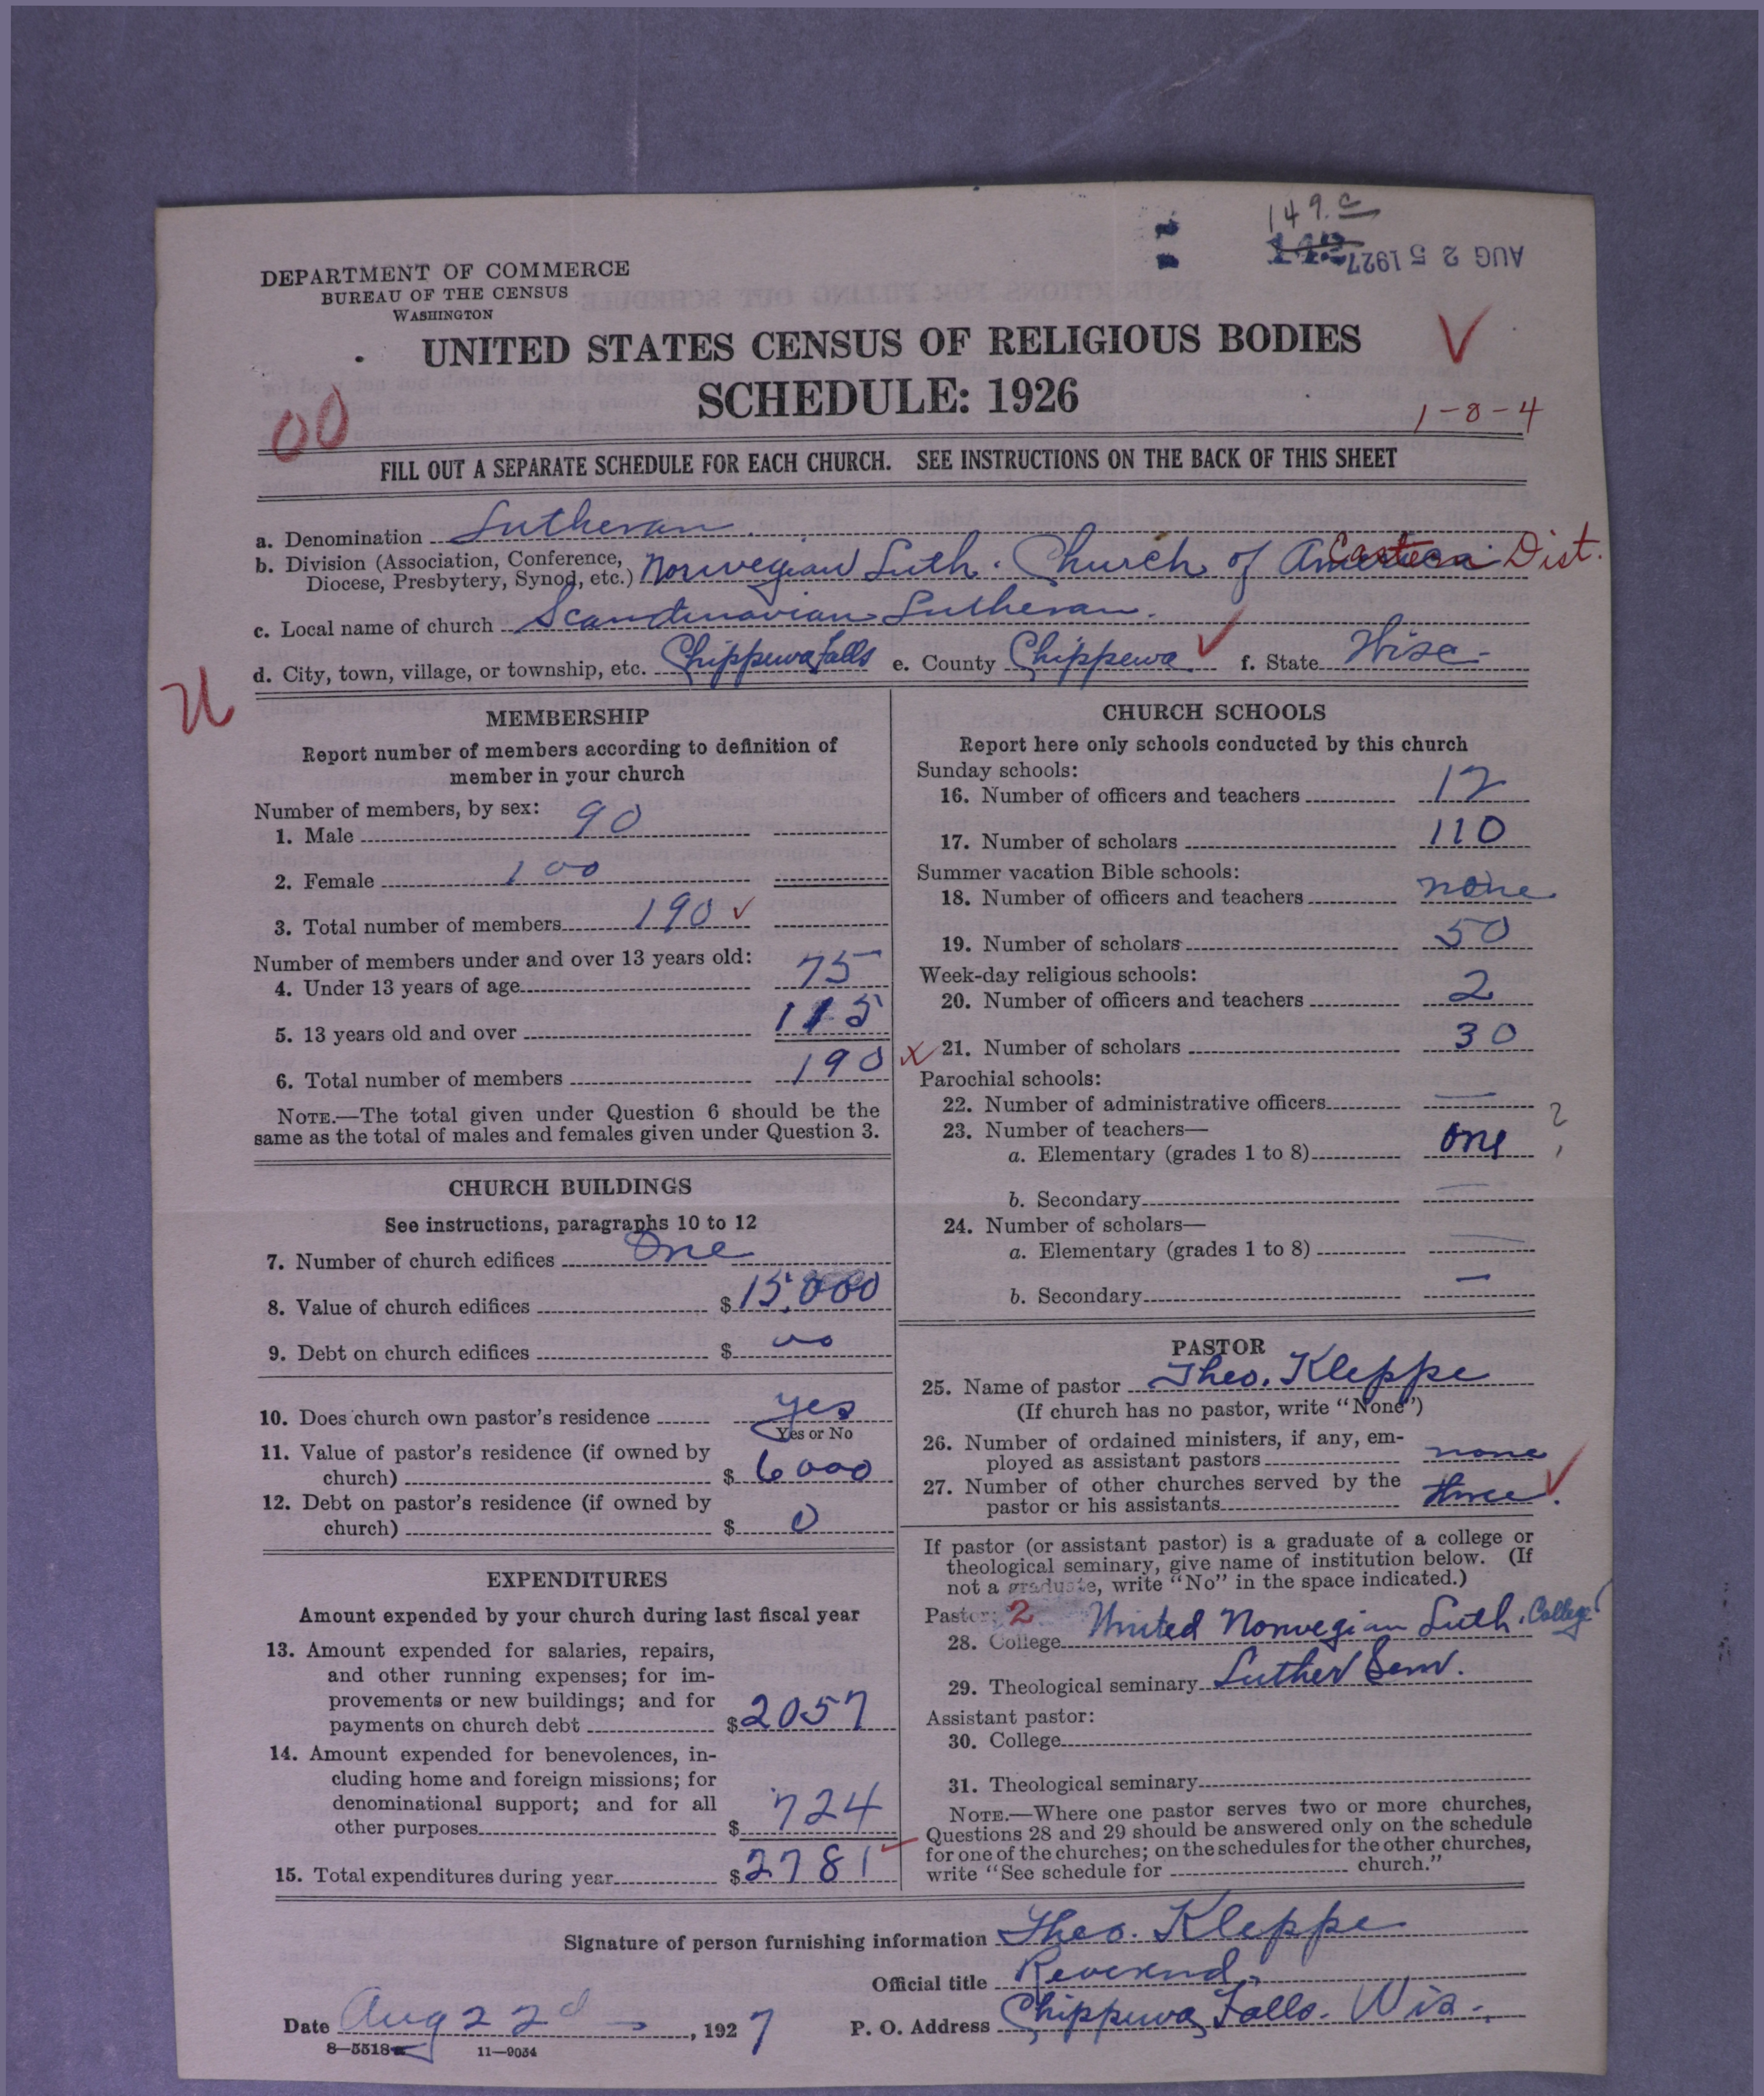 149.c
AUG 25 1927
DEPARTMENT OF COMMERCE
BUREAU OF THE CENSUS
WASHINGTON
UNITED STATES CENSUS OF RELIGIOUS BODIES
SCHEDULE: 1926
00
1-8-4
FILL OUT A SEPARATE SCHEDULE FOR EACH CHURCH. SEE INSTRUCTIONS ON THE BACK OF THIS SHEET
a. Denomination Lutheran
b. Division (Association, Conference, Diocese, Presbytery, Synod, etc.) Norwegian Luth. Church of America Eastern Dist.
c. Local name of church Scandinavian Lutheran.
d. City, town, village, or township, etc. Chippewa Falls e. County Chippewa f. State Wisc.
MEMBERSHIP
Report number of members according to definition of
member in your church
Number of members, by sex:
1. Male 90
2. Female 100
3. Total number of members 190
Number of members under and over 13 years old:
4. Under 13 years of age 75
5. 13 years old and over 115
6. Total number of members 190
NOTE.—The total given under Question 6 should be the
same as the total of males and females given under Question 3.
CHURCH BUILDINGS
See instructions, paragraphs 10 to 12
7. Number of church edifices One
8. Value of church edifices $15,000
9. Debt on church edifices $ 00
10. Does church own pastor's residence yes
Yes or No
11. Value of pastor's residence (if owned by
church) $ 6000
12. Debt on pastor's residence (if owned by
church) $ 0
EXPENDITURES
Amount expended by your church during last fiscal year
13. Amount expended for salaries, repairs,
and other running expenses; for im-
provements or new buildings; and for
payments on church debt $2057
14. Amount expended for benevolences, in-
cluding home and foreign missions; for
denominational support; and for all
other purposes $ 724
15. Total expenditures during year $2781
CHURCH SCHOOLS
Report here only schools conducted by this church
Sunday schools:
16. Number of officers and teachers 12
17. Number of scholars 110
Summer vacation Bible schools:
18. Number of officers and teachers none
19. Number of scholars 50
Week-day religious schools:
20. Number of officers and teachers 2
21. Number of scholars 30
Parochial schools:
22. Number of administrative officers —
23. Number of teachers—
a. Elementary (grades 1 to 8) one ?
b. Secondary —
24. Number of scholars—
a. Elementary (grades 1 to 8) —
b. Secondary —
PASTOR
25. Name of pastor Theo. Kleppe
(If church has no pastor, write "None")
26. Number of ordained ministers, if any, em-
ployed as assistant pastors none
27. Number of other churches served by the
pastor or his assistants three.
If pastor (or assistant pastor) is a graduate of a college or
theological seminary, give name of institution below. (If
not a graduate, write "No" in the space indicated.)
Pastor: 2
28. College United Norwegian Luth. College
29. Theological seminary Luther Sem.
Assistant pastor:
30. College
31. Theological seminary
NOTE.—Where one pastor serves two or more churches,
Questions 28 and 29 should be answered only on the schedule
for one of the churches; on the schedules for the other churches,
write "See schedule for church."
Signature of person furnishing information Theo. Kleppe
Official title Reverend
Date Aug 22d, 1927 P. O. Address Chippewa Falls. Wis.
8—5518 11—9034